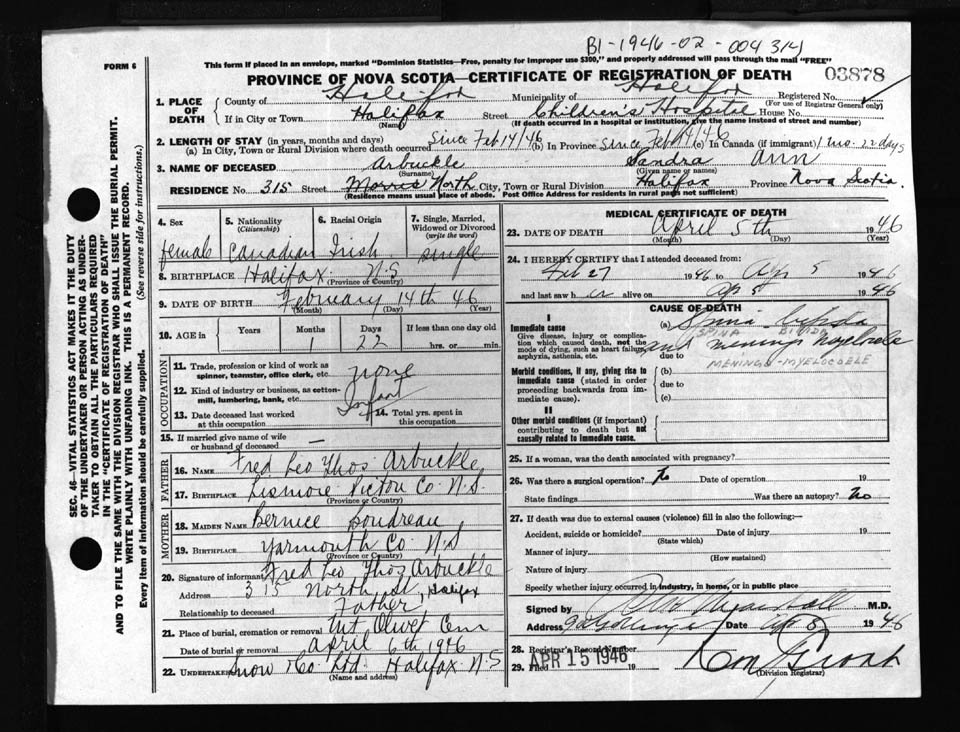 B1-1946-02-004314
FORM 6
This form if placed in an envelope, marked "Dominion Statistics—Free, penalty for improper use $300," and properly addressed will pass through the mail "FREE"
PROVINCE OF NOVA SCOTIA—CERTIFICATE OF REGISTRATION OF DEATH
03878
1. PLACE OF DEATH { County of Halifax Municipality of Halifax Registered No.
(For use of Registrar General only)
If in City or Town Halifax Street Children's Hospital House No.
(Name) (If death occurred in a hospital or institution, give the name instead of street and number)
2. LENGTH OF STAY (in years, months and days)
(a) In City, Town or Rural Division where death occurred since Feb 14/46 (b) In Province since Feb 14/46 (c) In Canada (if immigrant) 1 mo. 22 days
3. NAME OF DECEASED Arbuckle Sandra Ann
(Surname) (Given name or names)
RESIDENCE No. 315 Street Morris North City, Town or Rural Division Halifax Province Nova Scotia.
(Residence means usual place of abode. Post Office address for residents in rural parts not sufficient)
4. Sex 5. Nationality (Citizenship) 6. Racial Origin 7. Single, Married, Widowed or Divorced (write the word)
female Canadian Irish single
8. BIRTHPLACE Halifax N.S.
(Province or Country)
9. DATE OF BIRTH February 14th 46
(Month) (Day) (Year)
10. AGE in { Years Months Days If less than one day old
1 22 hrs. or min.
OCCUPATION
11. Trade, profession or kind of work as spinner, teamster, office clerk, etc. none
12. Kind of industry or business, as cotton-mill, lumbering, bank, etc. Infant
13. Date deceased last worked at this occupation 14. Total yrs. spent in this occupation
15. If married give name of wife or husband of deceased —
FATHER
16. NAME Fred Leo Thos Arbuckle
17. BIRTHPLACE Lismore Pictou Co. N.S.
(Province or Country)
MOTHER
18. MAIDEN NAME Bernice Boudreau
19. BIRTHPLACE Yarmouth Co N.S
(Province or Country)
20. Signature of informant Fred Leo Thos Arbuckle
Address 315 North St, Halifax
Relationship to deceased Father
21. Place of burial, cremation or removal Mt Olivet Cem
Date of burial or removal April 6th 1946
22. UNDERTAKER Snow & Co Ltd. Halifax N.S
(Name and address)
MEDICAL CERTIFICATE OF DEATH
23. DATE OF DEATH April 5th 1946
(Month) (Day) (Year)
24. I HEREBY CERTIFY that I attended deceased from:
Feb 27 1946 to Ap 5 1946
and last saw h er alive on Ap 5 1946
CAUSE OF DEATH
I
Immediate cause
Give disease, injury or complication which caused death, not the mode of dying, such as heart failure, asphyxia, asthenia, etc.
(a) Spina bifida
SPINA BIFIDA
and meningo myelocele
due to
MENINGO-MYELOCOELE
Morbid conditions, if any, giving rise to immediate cause (stated in order proceeding backwards from immediate cause).
(b)
due to
(c)
II
Other morbid conditions (if important) contributing to death but not causally related to immediate cause.
25. If a woman, was the death associated with pregnancy?
26. Was there a surgical operation? No Date of operation 19
State findings Was there an autopsy? No
27. If death was due to external causes (violence) fill in also the following:—
Accident, suicide or homicide? Date of injury 19
(State which)
Manner of injury
(How sustained)
Nature of injury
Specify whether injury occurred in industry, in home, or in public place
Signed by M.D.
Address Date Ap 8 1946
28. Registrar's Record Number
29. Filed APR 15 1946 19
(Division Registrar)
SEC. 46—VITAL STATISTICS ACT MAKES IT THE DUTY OF THE UNDERTAKER OR PERSON ACTING AS UNDERTAKER TO OBTAIN ALL THE PARTICULARS REQUIRED IN THE "CERTIFICATE OF REGISTRATION OF DEATH" AND TO FILE THE SAME WITH THE DIVISION REGISTRAR WHO SHALL ISSUE THE BURIAL PERMIT.
WRITE PLAINLY WITH UNFADING INK. THIS IS A PERMANENT RECORD.
Every item of information should be carefully supplied. (See reverse side for instructions.)